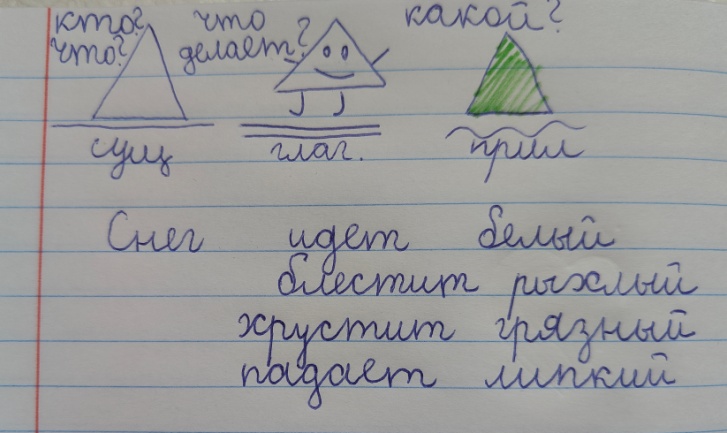 кто? что какой?
что? делает?
сущ глаг. прил
Снег идет белый
блестит рыхлый
хрустит грязный
падает липкий